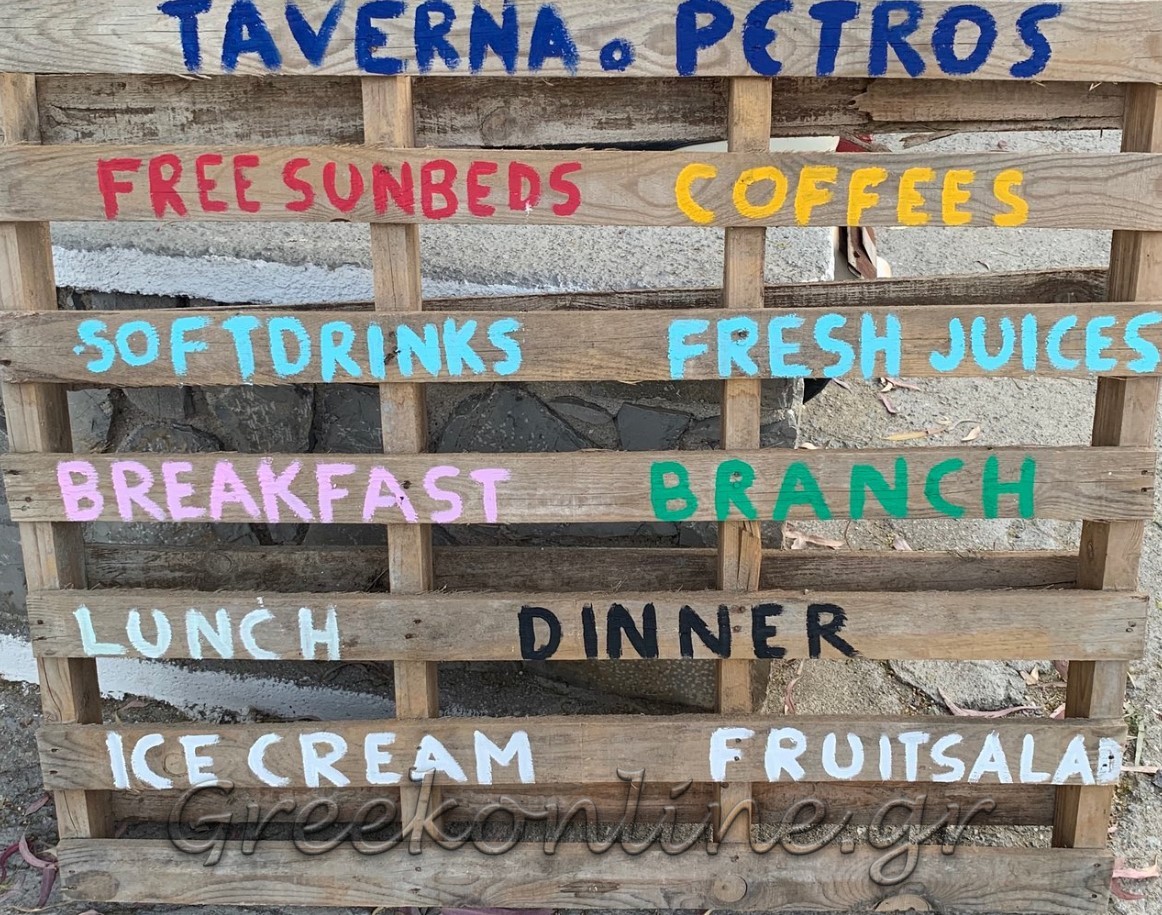 TAVERNA. o PETROS
FREE SUNBEDS COFFEES
SOFTDRINKS FRESH JUICES
BREAKFAST BRANCH
LUNCH DINNER
ICE CREAM FRUITSALAD
Greekonline.gr